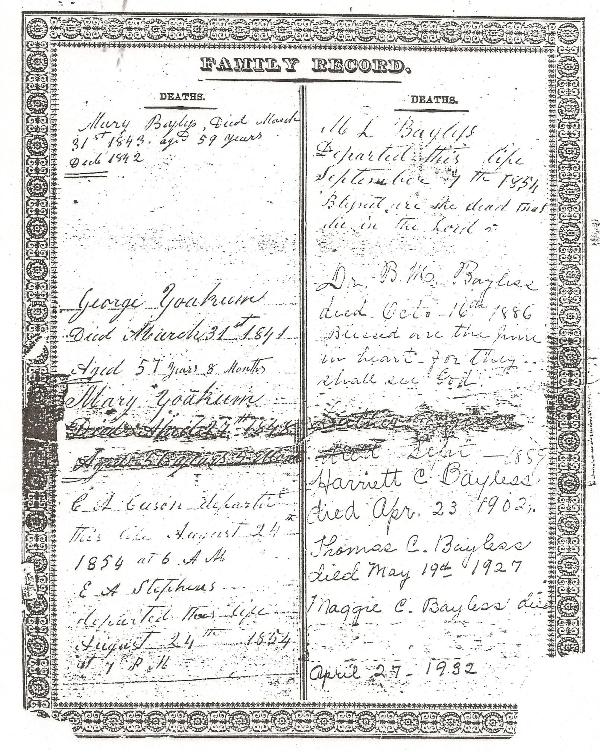 FAMILY RECORD.
DEATHS.
Mary Baylys, Died March
31st 1843. aged 59 years
Died 1842
George Yoakum
Died March 31st 1841
Aged 57 Years 8 Months
Mary Yoakum
Died April 27th 1843
Aged 56
E A Cuson departed
this life August 24th
1854 at 6 A M
E A Stephens
departed this life
August 24th 1854
at 7 P. M
DEATHS.
M L Baylys
Departed this life
September 7th 1854
Blessed are the dead that
die in the Lord
Dr. B M. Bayless
died Octo 16th 1886
Blessed are the pure
in heart for they
shall see God
1889
Harriett C Bayless
died Apr. 23 1902.
Thomas C. Bayless
died May 19th 1927
Maggie C. Bayless died
April 27 - 1932